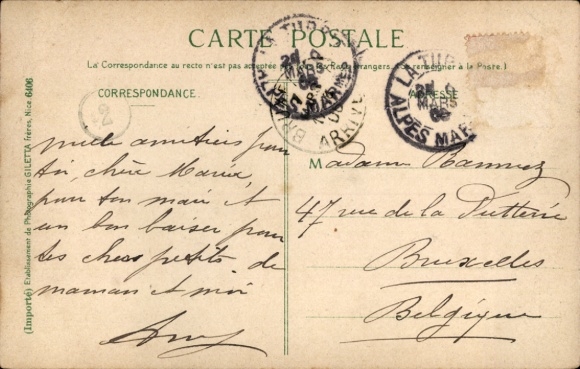 CARTE POSTALE
(La Correspondance au recto n'est pas acceptée par tous les Pays étrangers. (Se renseigner à la Poste.)
CORRESPONDANCE
ADRESSE
mille amitiés pour
toi, chère Marie,
pour ton mari et
un bon baiser pour
tes chers petits de
maman et moi
Madame
47 rue de la Putterie
Bruxelles
Belgique
LA TURBIE
ALPES MAR
MARS
LA TURBIE
ALPES MAR
MARS
ARRIVÉE
(Importé) Etablissement de Photographie GILETTA frères, Nice 6406